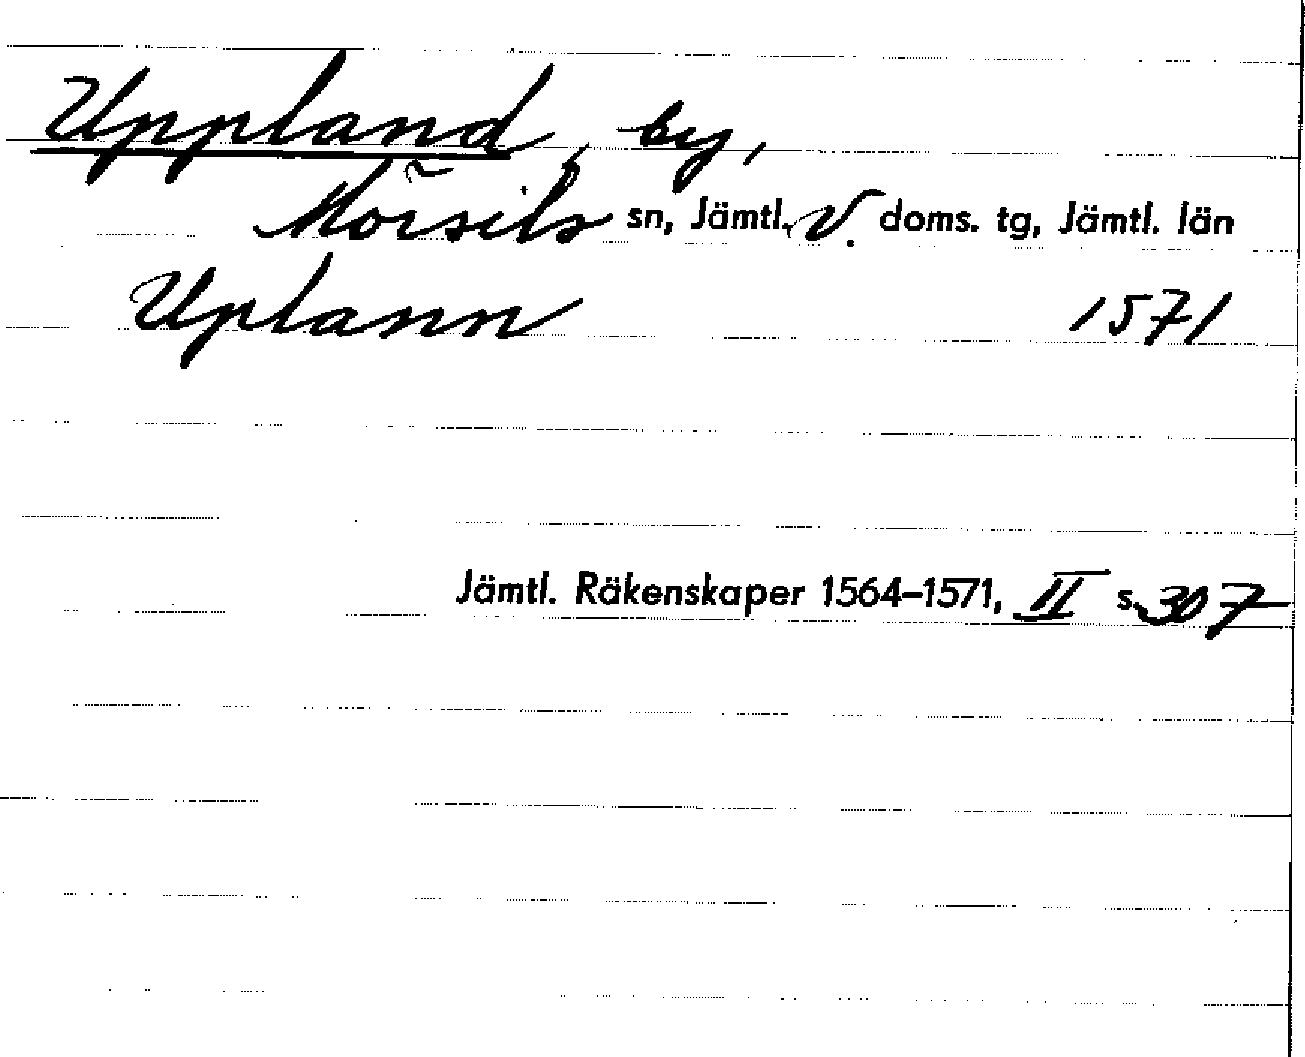 Uppland, by,
Mörsils sn, Jämtl. V. doms. tg, Jämtl. län
Uplann 1571
Jämtl. Räkenskaper 1564–1571, II s. 307